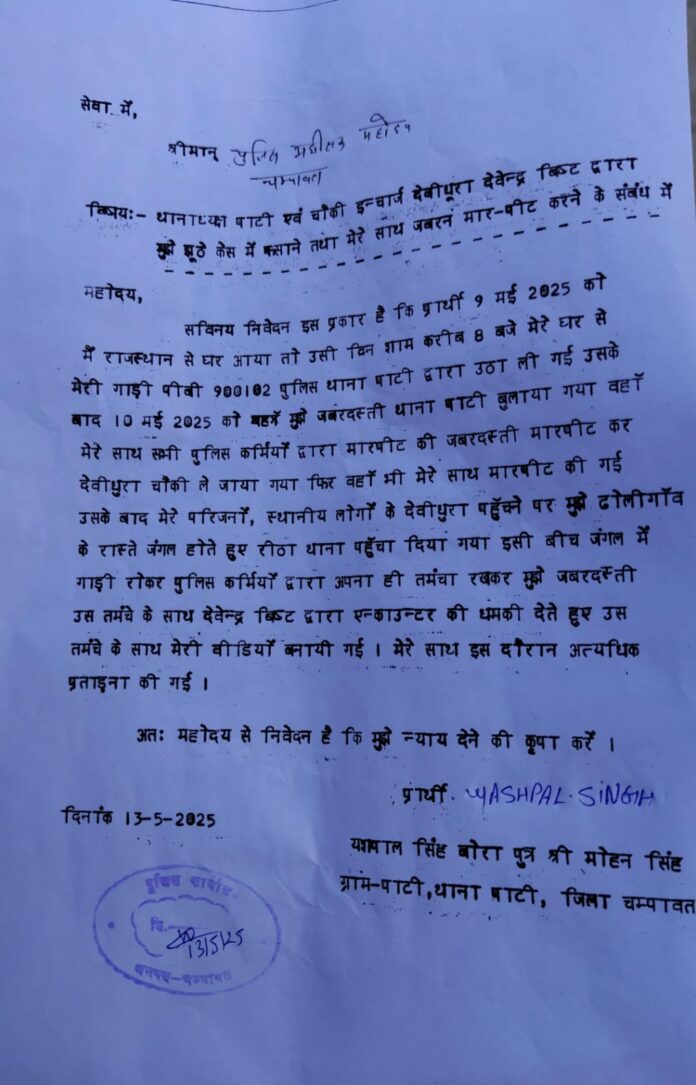 सेवा में,
श्रीमान् पुलिस अधीक्षक महोदय
चम्पावत
विषयः- थानाध्यक्ष पाटी एवं चौकी इन्चार्ज देवीधूरा देवेन्द्र बिष्ट द्वारा
मुझे झूठे केस में फसाने तथा मेरे साथ जबरन मार-पीट करने के संबंध में
महोदय,
सविनय निवेदन इस प्रकार है कि प्रार्थी 9 मई 2025 को
मैं राजस्थान से घर आया तो उसी दिन शाम करीब 8 बजे मेरे घर से
मेरी गाड़ी पीबी 900102 पुलिस थाना पाटी द्वारा उठा ली गई उसके
बाद 10 मई 2025 को मुझे जबरदस्ती थाना पाटी बुलाया गया वहाँ
मेरे साथ सभी पुलिस कर्मियों द्वारा मारपीट की जबरदस्ती मारपीट कर
देवीधुरा चौकी ले जाया गया फिर वहाँ भी मेरे साथ मारपीट की गई
उसके बाद मेरे परिजनों, स्थानीय लोगों के देवीधुरा पहुँचने पर मुझे ढोलीगाँव
के रास्ते जंगल होते हुए रीठा थाना पहुँचा दिया गया इसी बीच जंगल में
गाड़ी रोकर पुलिस कर्मियों द्वारा अपना ही तमंचा रखकर मुझे जबरदस्ती
उस तमंचे के साथ देवेन्द्र बिष्ट द्वारा एन्काउन्टर की धमकी देते हुए उस
तमंचे के साथ मेरी वीडियों बनायी गई । मेरे साथ इस दौरान अत्यधिक
प्रताड़ना की गई ।
अतः महोदय से निवेदन है कि मुझे न्याय देने की कृपा करें ।
प्रार्थी. YASHPAL. SINGH
दिनांक 13-5-2025
यशपाल सिंह बोरा पुत्र श्री मोहन सिंह
ग्राम-पाटी,थाना पाटी, जिला चम्पावत
पुलिस कार्यालय
दि.
13/5/25
जनपद-चम्पावत